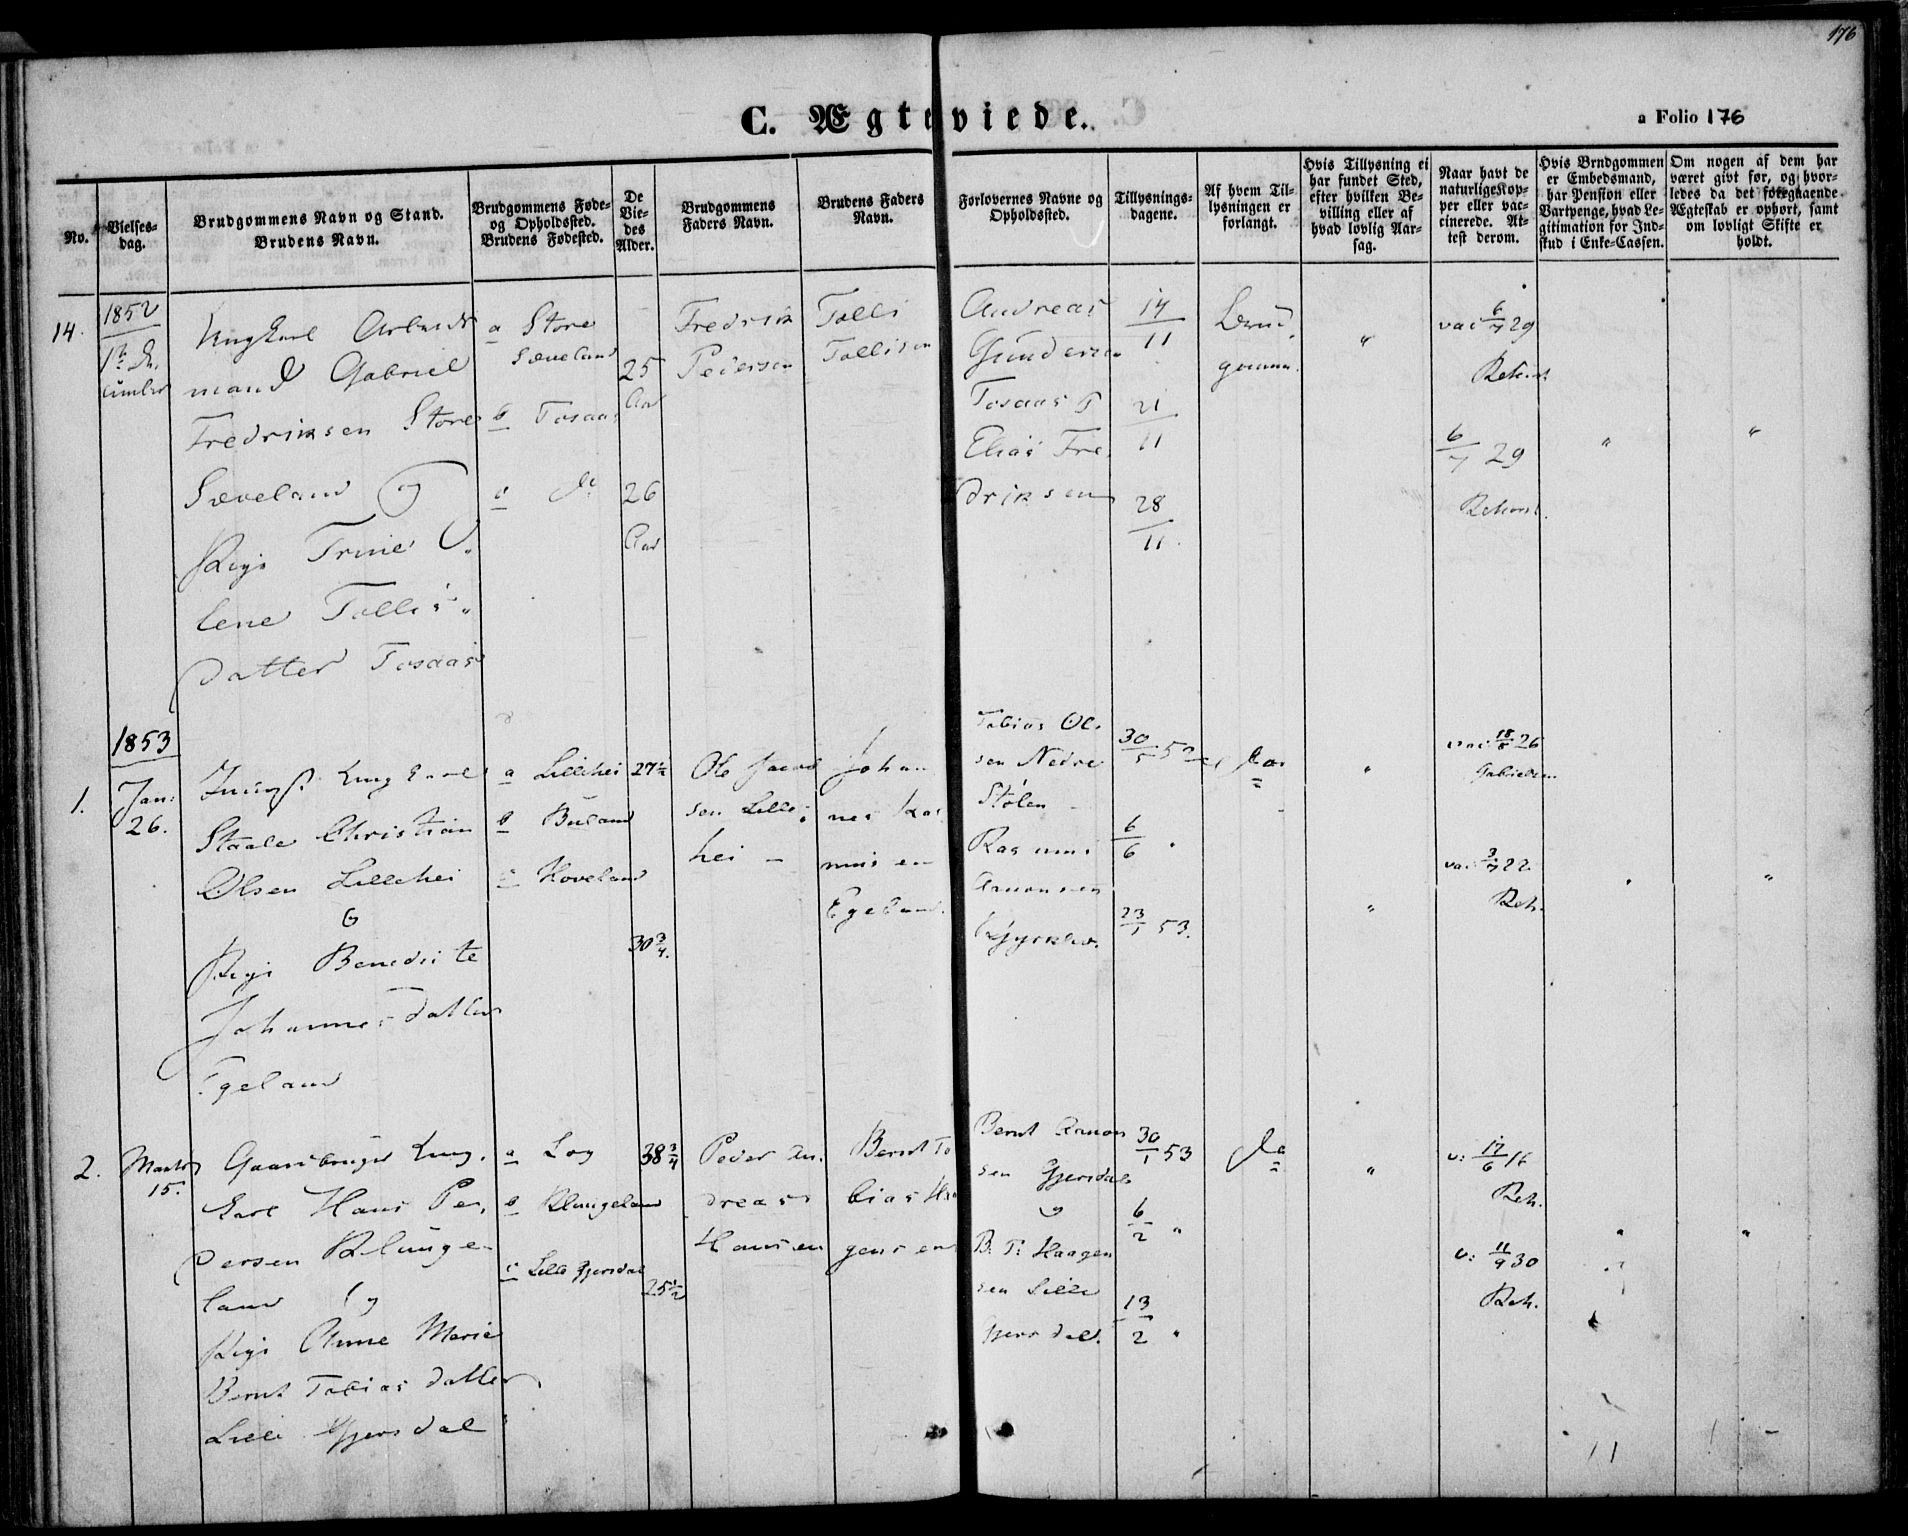 176
C. Ægteviede.
a Folio 176
No.
Vielses-
dag.
Brudgommens Navn og Stand.
Brudens Navn.
Brudgommens Føde-
og Opholdssted.
Brudens Fødested.
De
Vie-
des
Alder.
Brudgommens
Faders Navn.
Brudens Faders
Navn.
Forlovernes Navne og
Opholdssted.
Tillysnings-
dagene.
Af hvem Til-
lysningen er
forlangt.
Hvis Tillysning ei
har fundet Sted,
efter hvilken Be-
villing eller af
hvad lovlig Aar-
sag.
Naar havt de
naturlige Kop-
per eller vac-
cinerede. At-
test derom.
Hvis Brudgommen
er Embedsmand,
har Pension eller
Vartpenge, hvad Le-
gitimation for Ind-
skud i Enke-Cassen.
Om nogen af dem har
været gift før, og hvor-
ledes da det foregaaende
Ægteskab er ophørt, samt
om lovligt Skifte er
holdt.
14.
1852
Ungkarl Arbeids
mand Gabriel
Fredriksen Store
Sæveland og
Pige Trine
lene Tollis
datter Tosaas
a Store
Sæveland
b Tosaas
c do
25
Aar
26
Aar
Fredrik
Pedersen
Tolli
Tollisen
Andreas
Gundersen
Tosaas
Elias Fre
driksen
14/11
21/11
28/11
Brud
gommen
"
vac 6/7 29
6/7 29
"
"
1853
1.
Jan:
26.
Ungkarl
Staale Christian
Olsen Lillehei
Pige Benedicte
Johannesdatter
Egeland
a Lillehei
b Bueland
c Hoveland
27 1/2
30 3/4.
Ole Jacob
sen Lille
hei
Johan
nes Ras
musen
Egeland.
Tobias Ol
sen Nedre
Stølen
Rasmus
Aanonsen
30/5 52
6/6 "
23/1 53.
do
"
"
vac 18/8 26
vac 3/7 22
Reh.
"
2.
Marts
15.
Gaardbruger Ung.
karl Hans Pe.
dersen Klunge
land og
Pige Anne Marie
Bernt Tobias datter
Lille Gjersdal
a Log
b Klungeland
c Lille Gjersdal
38 3/4
25 1/2
Peder An.
dreas
Hansen
Bernt To
bias Haa
gensen
Bernt Aanon
sen Gjersdal
og
B. T. Haagen
sen Lille
Gjersdal.
30/1 53
6/2 "
13/2 "
do
"
v: 17/6 16
Reh.
v: 11/9 30
Reh.
"
"